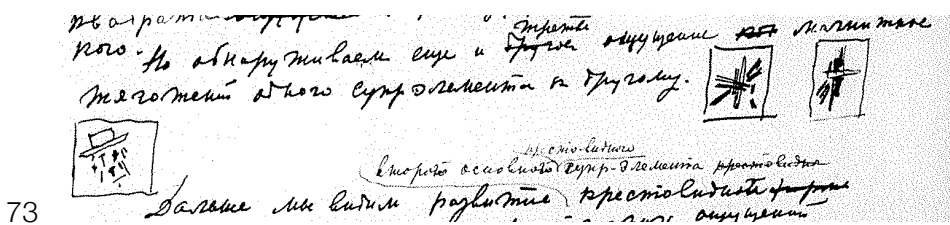 третье
кого. Но обнаруживаем еще и другое ощущение как магнитное
тяготение одного супр элемента к другому.
крестовидного
второго основного супр-элемента крестовидна
Дальше мы видим развитие крестовидной формы
ощущений
73